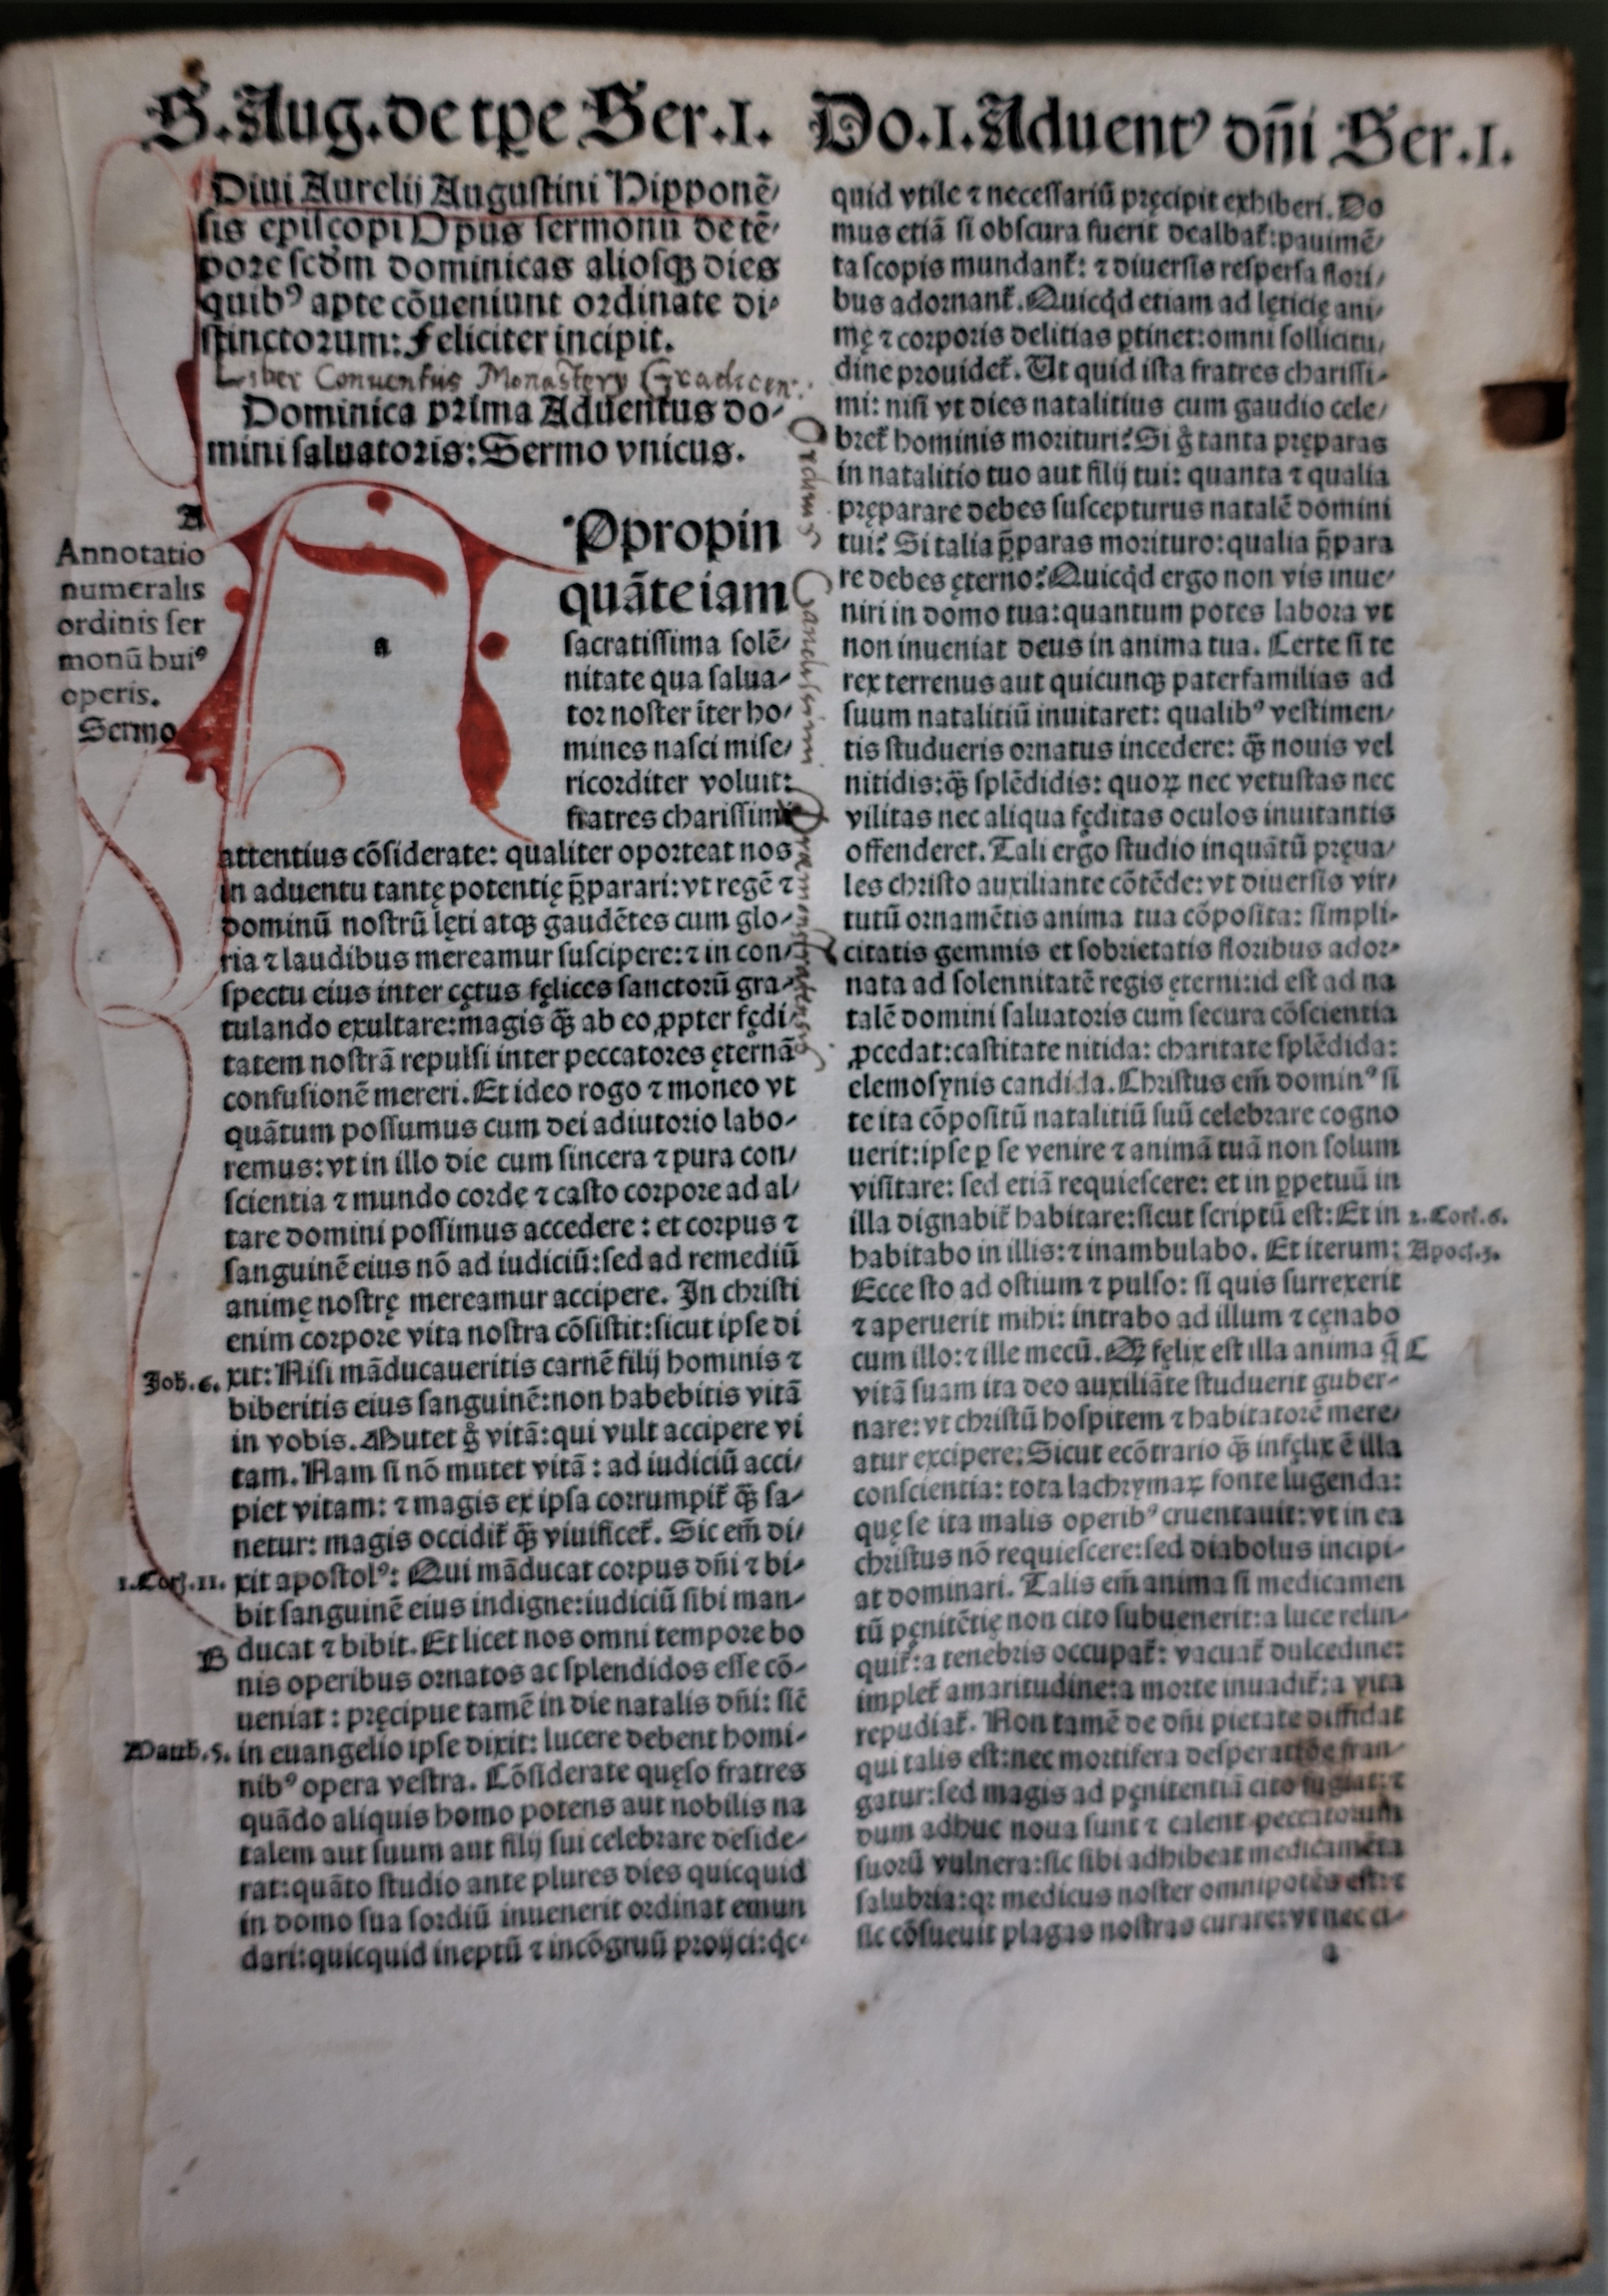 S. Aug. de tp̄e Ser. I. Do. I. Aduentꝰ dn̄i Ser. I.
Diui Aurelij Augustini Hipponē/
sis episcopi Opus sermonū de tē/
pore scd̄m dominicas aliosqꝫ dies
quibꝰ apte cōueniunt ordinate di/
stinctorum: Feliciter incipit.
Liber Conuentus Monastery Gradicen:
Dominica prima Aduentus do/
mini saluatoris: Sermo vnicus.
A
Annotatio
numeralis
ordinis ser
monū huiꝰ
operis.
Sermo
a
Ppropin
quāte iam
sacratissima solē/
nitate qua salua-
tor noster īter ho/
mines nasci mise/
ricorditer voluit:
fratres charissimi
attentius cōsiderate: qualiter oporteat nos
in aduentu tantę potentię p̄parari: vt regē ⁊
dominū nostrū lęti atqꝫ gaudētes cum glo-
ria ⁊ laudibus mereamur suscipere: ⁊ in con/
spectu eius inter cętus fęlices sanctorū gra-
tulando exultare: magis qꝫ̄ ab eo ꝓpter fędi/
tatem nostrā repulsi inter peccatores ęternā
confusionē mereri. Et ideo rogo ⁊ moneo vt
quātum possumus cum dei adiutorio labo-
remus: vt in illo die cum sincera ⁊ pura con/
scientia ⁊ mundo corde ⁊ casto corpore ad al/
tare domini possimus accedere: et corpus ⁊
sanguinē eius nō ad iudiciū: sed ad remediū
animę nostrę mereamur accipere. In christi
enim corpore vita nostra cōsistit: sicut ipse di
Joh. 6. xit: Nisi māducaueritis carnē filij hominis ⁊
biberitis eius sanguinē: non habebitis vitā
in vobis. Mutet g̊ vitā: qui vult accipere vi
tam. Nam si nō mutet vitā: ad iudiciū acci/
piet vitam: ⁊ magis ex ipsa corrumpit̃ qꝫ̄ sa-
netur: magis occidit̃ qꝫ̄ viuificet̃. Sic em̄ di/
1. Corī. 11. xit apostolꝰ: Qui māducat corpus dn̄i ⁊ bi-
bit sanguinē eius indigne: iudiciū sibi man-
B ducat ⁊ bibit. Et licet nos omni tempore bo
nis operibus ornatos ac splendidos esse cō-
ueniat: pręcipue tamē in die natalis dn̄i: sic̄
Matth. 5. in euangelio ipse dixit: lucere debent homi-
nibꝰ opera vestra. Cōsiderate quęso fratres
quādo aliquis homo potens aut nobilis na
talem aut suum aut filij sui celebrare deside-
rat: quāto studio ante plures dies quicquid
in domo sua sordiū inuenerit ordinat emun
dari: quicquid ineptū ⁊ incōgruū proijci: qc̄-
Ordinis
Canchissimi
Praemonstratensis
quid vtile ⁊ necessariū pręcipit exhiberi. Do
mus etiā si obscura fuerit dealbat̃: pauimē/
ta scopis mundant̃: ⁊ diuersis respersa flori/
bus adornant̃. Quicqd̄ etiam ad lęticię ani-
mę ⁊ corporis delitias ꝑtinet: omni sollicitu/
dine prouidet̃. Ut quid ista fratres charissi-
mi: nisi vt dies natalitius cum gaudio cele/
bret̃ hominis morituri? Si g̊ tanta pręparas
in natalitio tuo aut filij tui: quanta ⁊ qualia
pręparare debes suscepturus natalē domini
tui? Si talia p̄paras morituro: qualia p̄para
re debes ęterno? Quicqd̄ ergo non vis inue/
niri in domo tua: quantum potes labora vt
non inueniat deus in anima tua. Certe si te
rex terrenus aut quicunqꝫ paterfamilias ad
suum natalitiū inuitaret: qualibꝰ vestimen/
tis studueris ornatus incedere: qꝫ̄ nouis vel
nitidis: qꝫ̄ splēdidis: quoꝝ nec vetustas nec
vilitas nec aliqua fęditas oculos inuitantis
offenderet. Tali ergo studio inquātū pręua/
les christo auxiliante cōtēde: vt diuersis vir/
tutū ornamētis anima tua cōposita: simpli-
citatis gemmis et sobrietatis floribus ador-
nata ad solennitatē regis ęterni: id est ad na
talē domini saluatoris cum secura cōscientia
ꝓcedat: castitate nitida: charitate splēdida:
elemosynis candida. Christus em̄ dominꝰ si
te ita cōpositū natalitiū suū celebrare cogno
uerit: ipse ꝑ se venire ⁊ animā tuā non solum
visitare: sed etiā requiescere: et in ꝑpetuū in
illa dignabit̃ habitare: sicut scriptū est: Et in 2. Cori. 6.
habitabo in illis: ⁊ inambulabo. Et iterum: Apocl. 3.
Ecce sto ad ostium ⁊ pulso: si quis surrexerit
⁊ aperuerit mihi: intrabo ad illum ⁊ cęnabo
cum illo: ⁊ ille mecū. Qꝫ̄ fęlix est illa anima q̄ C
vitā suam ita deo auxiliāte studuerit guber-
nare: vt christū hospitem ⁊ habitatorē mere/
atur excipere: Sicut ecōtrario qꝫ̄ infęlix ē illa
conscientia: tota lachrymaꝝ fonte lugenda:
quę se ita malis operibꝰ cruentauit: vt in ea
christus nō requiescere: sed diabolus incipi-
at dominari. Talis em̄ anima si medicamen
tū pęnitētię non cito subuenerit: a luce relin-
quit̃: a tenebris occupat̃: vacuat̃ dulcedine:
implet̃ amaritudine: a morte inuadit̃: a vita
repudiat̃. Non tamē de dn̄i pietate diffidat
qui talis est: nec mortifera desperatiōe fran-
gatur: sed magis ad pęnitentiā cito fugiat: ⁊
dum adhuc noua sunt ⁊ calent peccatorum
suorū vulnera: sic sibi adhibeat medicamēta
salubria: qꝛ medicus noster omnipotēs est: ⁊
sic cōsueuit plagas nostras curare: vt nec ci-
a